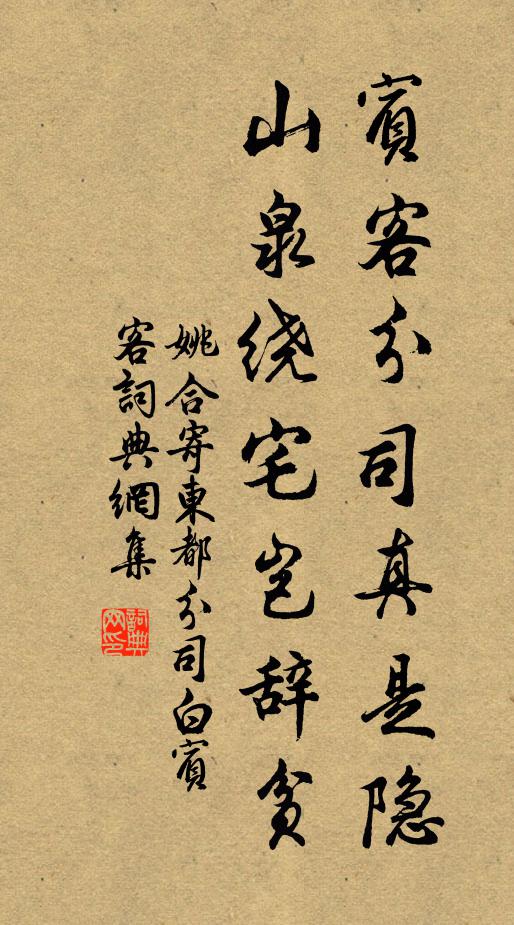 賓客分司真是隐
山泉绕宅岂辞貧
姚合寄東都分司白賓
客詞典網集
詞典网印